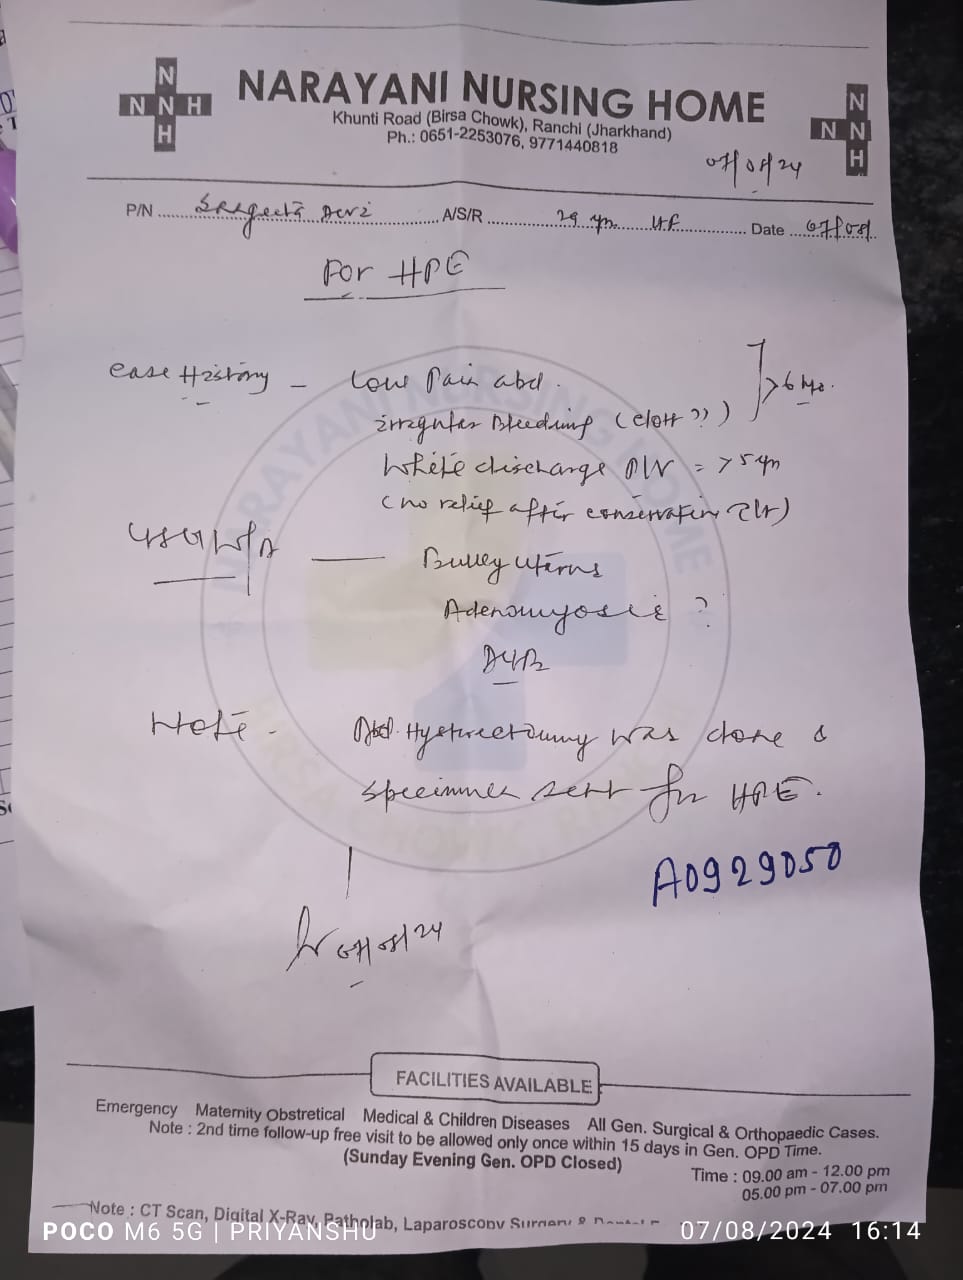 N
N N H
H
NARAYANI NURSING HOME
Khunti Road (Birsa Chowk), Ranchi (Jharkhand)
Ph.: 0651-2253076, 9771440818
N
N N
H
07/08/24
P/N Sangeeta Devi A/S/R 29 yrs F Date 07/08/
For HPE
Case History - Low Pain abd.
irregular Bleeding (clott ??) > 6 mo.
White discharge P/V = > 5 yrs
(no relief after conservative
Bulky uterus
Adenomyosis ?
DUB
Note - Abd. Hysterectomy was done &
specimen sent for HPE.
A0929050
07/08/24
FACILITIES AVAILABLE
Emergency Maternity Obstretical Medical & Children Diseases All Gen. Surgical & Orthopaedic Cases.
Note : 2nd time follow-up free visit to be allowed only once within 15 days in Gen. OPD Time.
(Sunday Evening Gen. OPD Closed)
Time : 09.00 am - 12.00 pm
05.00 pm - 07.00 pm
Note : CT Scan, Digital X-Ray, Patholab, Laparoscopy Surgery &
POCO M6 5G | PRIYANSHU
07/08/2024 16:14